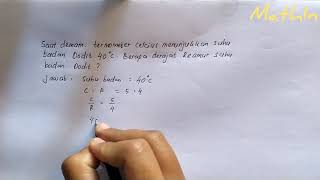 MathIn
Saat demam, termometer celcius menunjukkan suhu
badan Dodit 40°C. Berapa derajat Reamur suhu
badan Dodit ?
Jawab : Suhu badan = 40°C
C : R = 5 : 4
C/R = 5/4
4